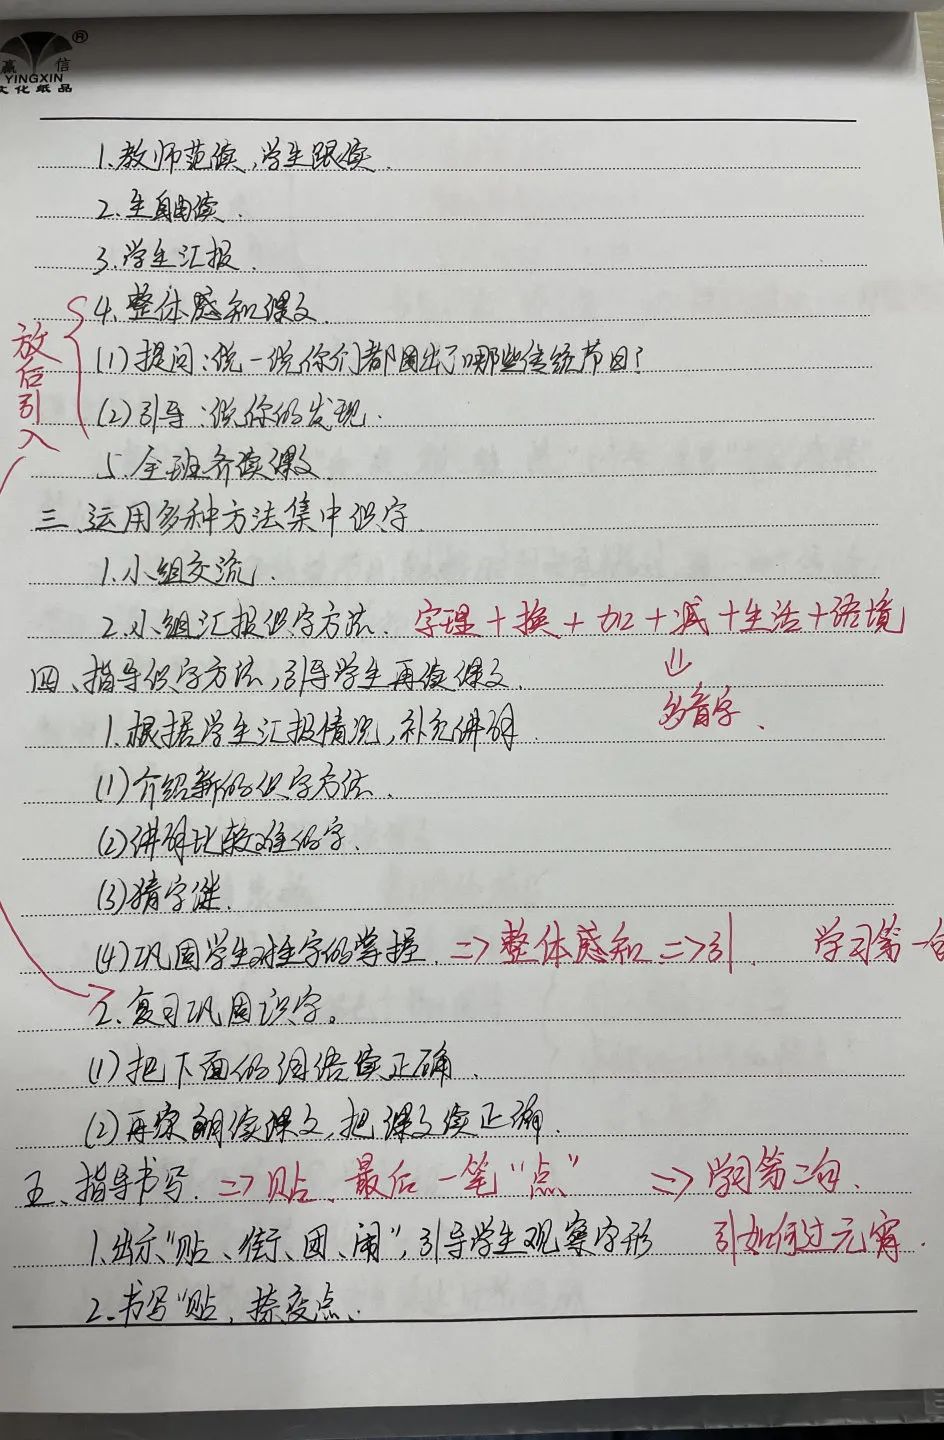 赢 信
YINGXIN
文化纸品
1.教师范读,学生跟读.
2.生自由读.
3.学生汇报.
4.整体感知课文.
(1)提问:说一说你们都圈出了哪些传统节日?
(2)引导:说你的发现.
放后引入
5.全班齐读课文.
三、运用多种方法集中识字.
1.小组交流.
2.小组汇报识字方法. 字理+换+加+减+生活+语境
⇓
多音字、
四、指导识字方法,引导学生再读课文.
1.根据学生汇报情况,补充讲解.
(1)介绍新的识字方法.
(2)讲解比较难的字.
(3)猜字谜.
(4)巩固学生对生字的掌握. =>整体感知=>引. 学习第一句
2.复习巩固识字。
(1)把下面的词语读正确.
(2)再次朗读课文,把课文读正确.
五、指导书写. =>贴、最后一笔“点” =>学习第二句.
1.出示“贴、街、团、闹”,引导学生观察字形 引如何过元宵.
2.书写“贴,捺变点.